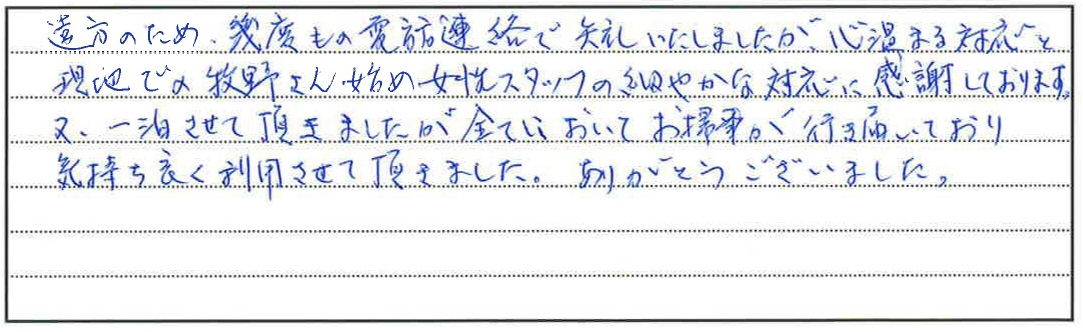 遠方のため、幾度もの電話連絡で失礼いたしましたが、心温まる対応と
現地での牧野さん始め女性スタッフの細やかな対応に感謝しております。
又、一泊させて頂きましたが全てにおいてお掃除が行き届いており
気持ち良く利用させて頂きました。ありがとうございました。